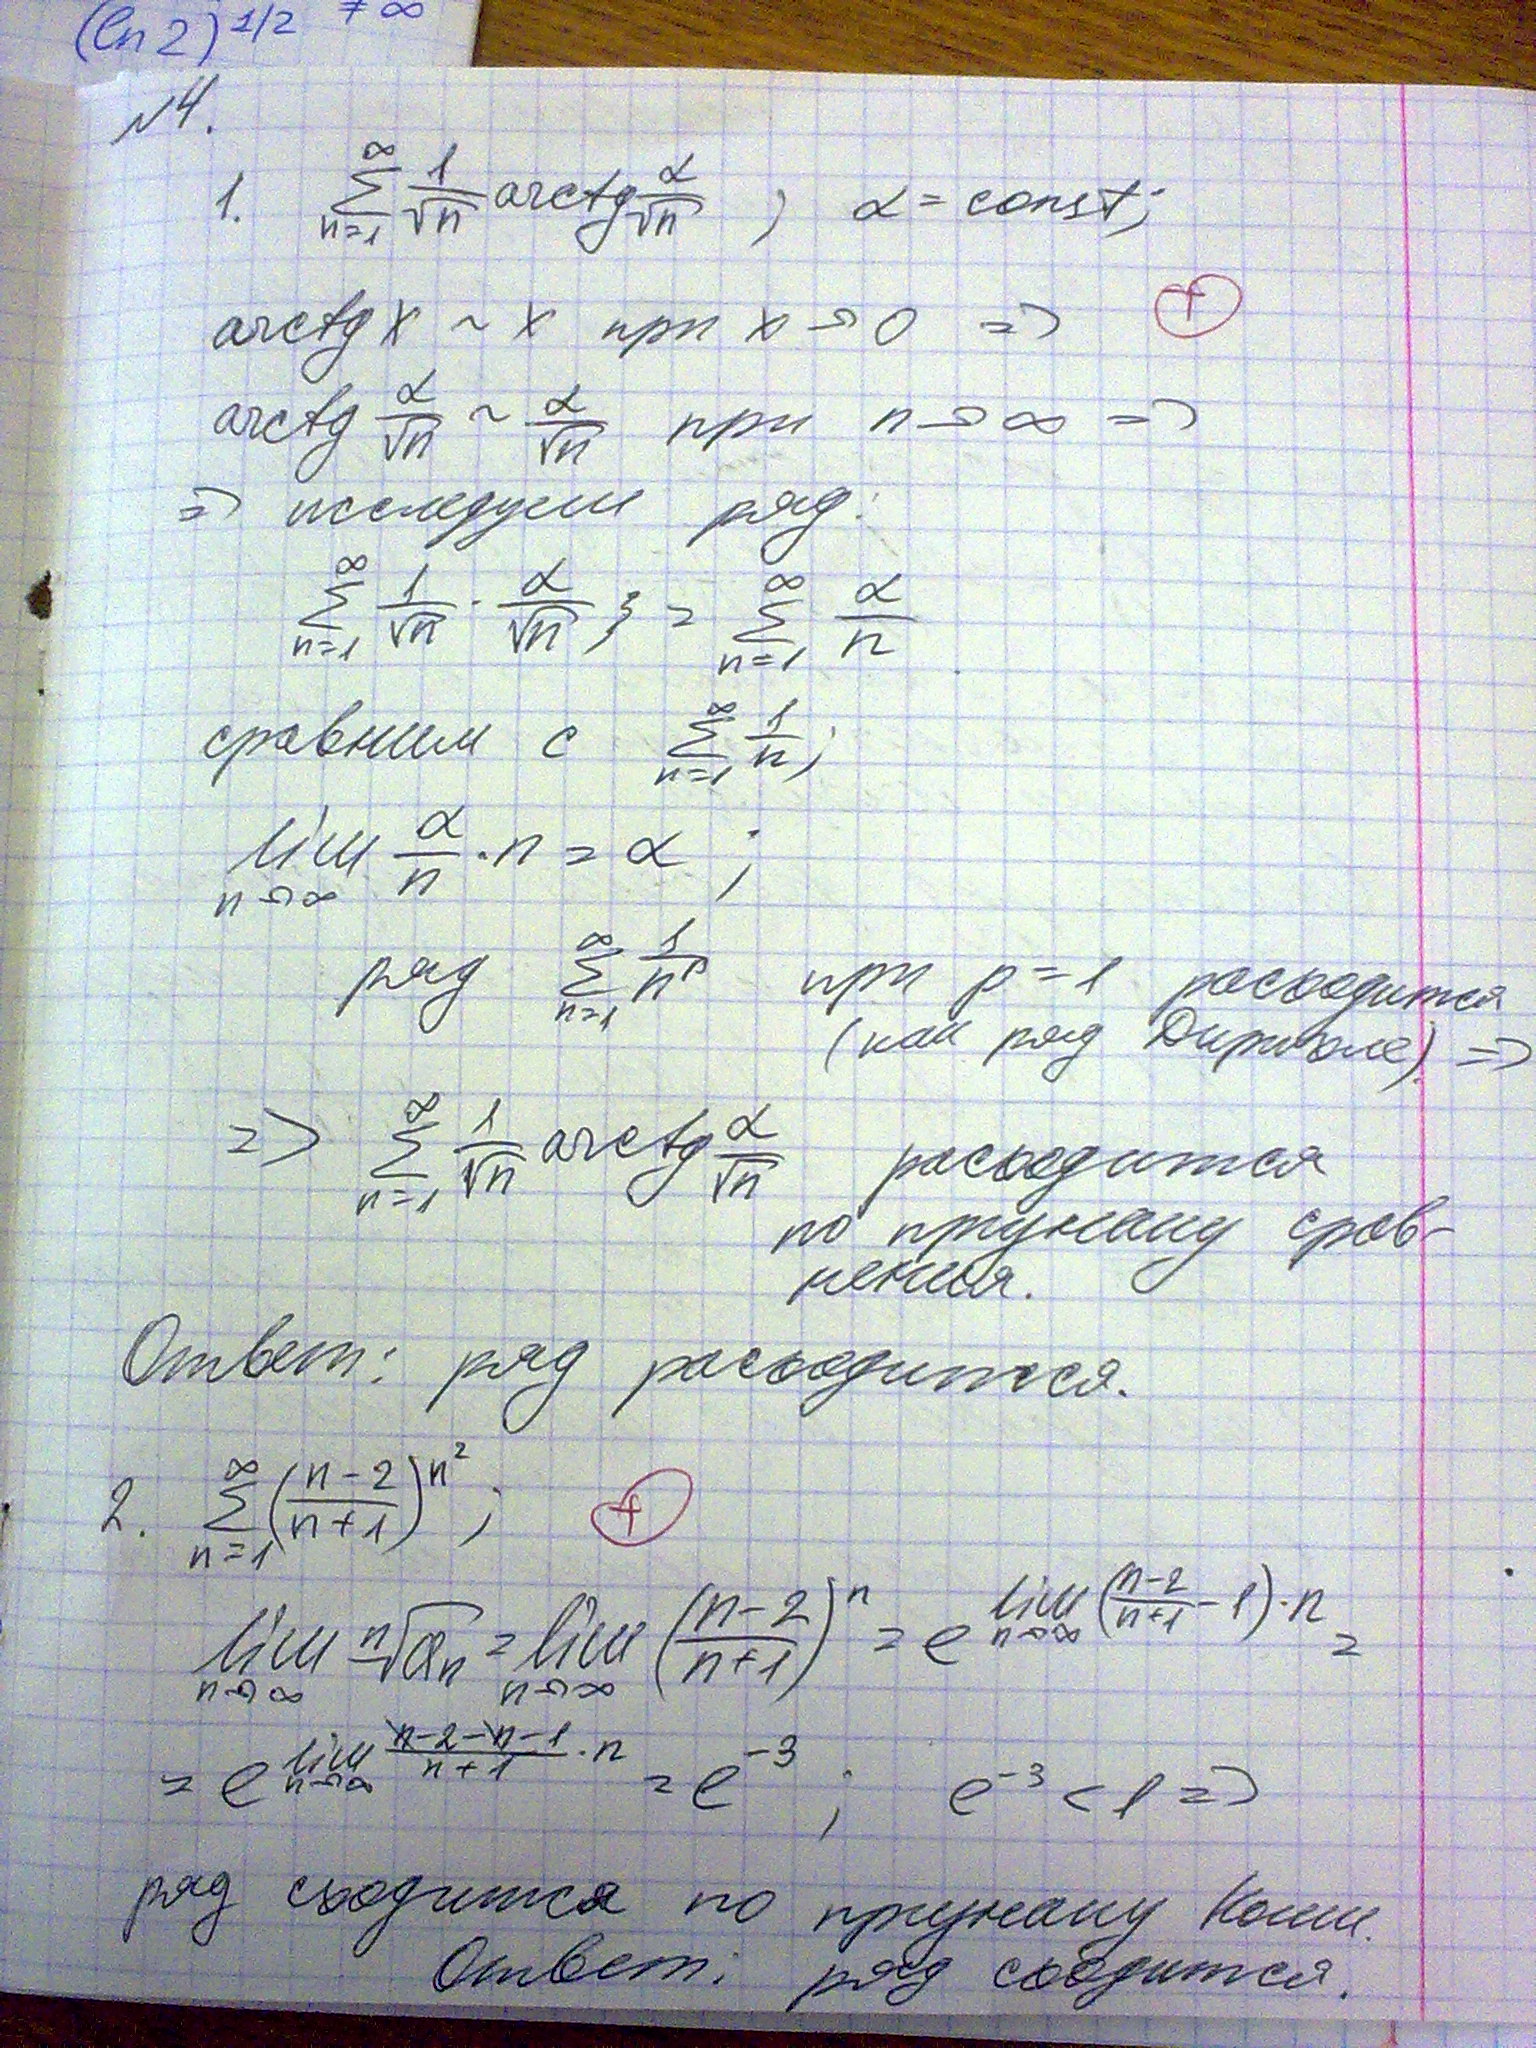 (ln 2)^{1/2} ≠ ∞
№4.
1. \sum_{n=1}^{∞} \frac{1}{\sqrt{n}} arctg \frac{α}{\sqrt{n}} ; α = const;
arctg x ~ x при x → 0 => +
arctg \frac{α}{\sqrt{n}} ~ \frac{α}{\sqrt{n}} при n → ∞ =>
=> исследуем ряд:
\sum_{n=1}^{∞} \frac{1}{\sqrt{n}} · \frac{α}{\sqrt{n}} ; = \sum_{n=1}^{∞} \frac{α}{n}
сравним с \sum_{n=1}^{∞} \frac{1}{n};
\lim_{n→∞} \frac{α}{n} · n = α ;
ряд \sum_{n=1}^{∞} \frac{1}{n^p} при p = 1 расходится
(как ряд Дирихле) =>
=> \sum_{n=1}^{∞} \frac{1}{\sqrt{n}} arctg \frac{α}{\sqrt{n}} расходится
по признаку срав-
нения.
Ответ: ряд расходится.
2. \sum_{n=1}^{∞} (\frac{n-2}{n+1})^{n^2} ; +
\lim_{n→∞} \sqrt[n]{a_n} = \lim_{n→∞} (\frac{n-2}{n+1})^n = e^{\lim_{n→∞} (\frac{n-2}{n+1} - 1)·n} =
= e^{\lim_{n→∞} \frac{n-2-n-1}{n+1}·n} = e^{-3} ; e^{-3} < 1 =>
ряд сходится по признаку Коши.
Ответ: ряд сходится.